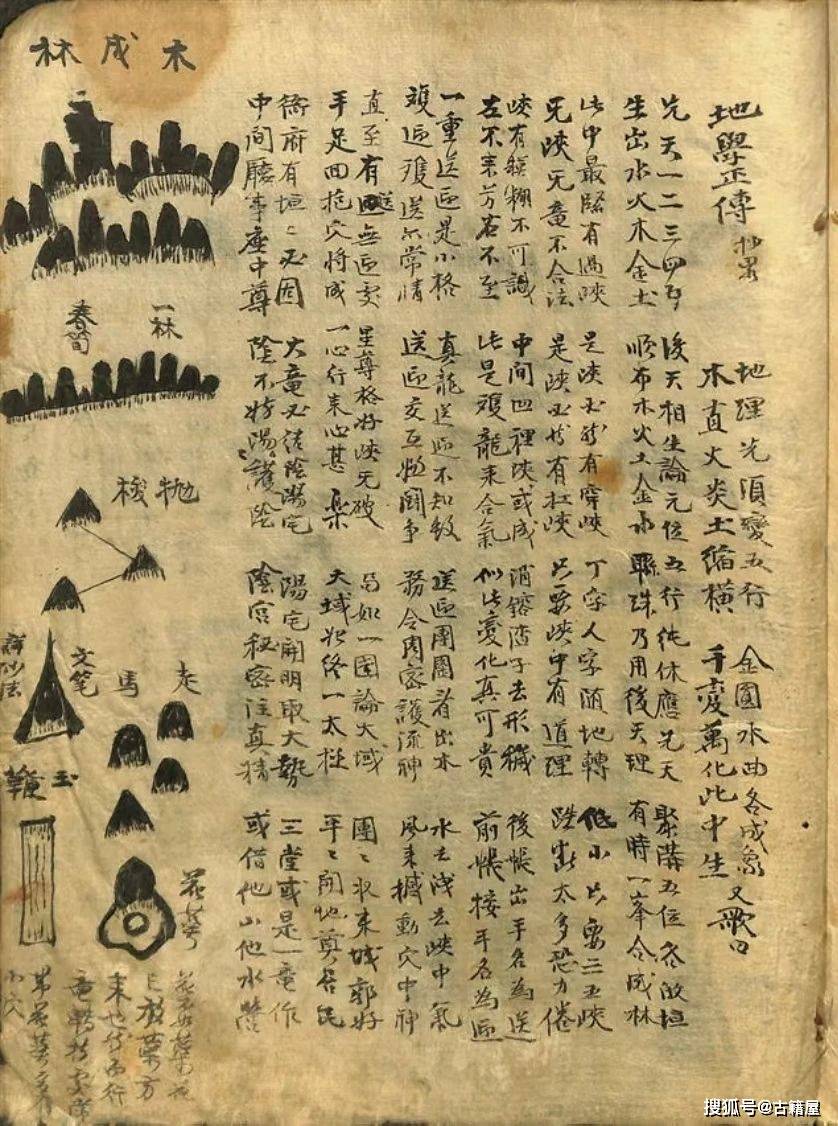 地學正傳
地理先須變五行 金圓水曲各成象 又歌曰
木直火炎土縮橫 千變萬化此中生
先天一二三四五 後天相生論元位 五行純休應先天 聚講五位各垣
生出水火木金土 順布木火土金水 聯珠乃用後天理 有時一峯合成林
此中最緊有過峽 是峽必然有穿峽 丁字人字隨地轉 他小只要三五峽
无峽无竜不合法 是峽必然有扛峽 只要峽中有道理 跌斷太多恐力倦
峽有模糊不可識 中間四裡峽或成 消鎔渣子去形穢 後帳出手名為送
左不來芳若不至 此是龍來合氣 似此變化真可貴 前帳接手名為迎
一重送迎是小格 真龍送迎不知數 送迎團團看出水 水去淺去峽中氣
複迎複送尓常情 送迎交互鬪爭 務令周密護流神 風來撼動穴中神
直至有送無迎處 星尊格好峽无破 局如一圍論大域 團〻收來城郭好
手足回抱穴將成 一心行來心甚樂 大域終一太極 平〻開地奠居民
衙府有垣〻必固 大竜必結陰陽宅 陽宅開明取大勢 三堂或是一竜作
中間廳事座中尊 陰不特陽護陰 陰宮秘密注真精 或借他山他水營
木成林
一林
春筍
拋梭
走馬
文笔
玉
搜狐号@古籍屋